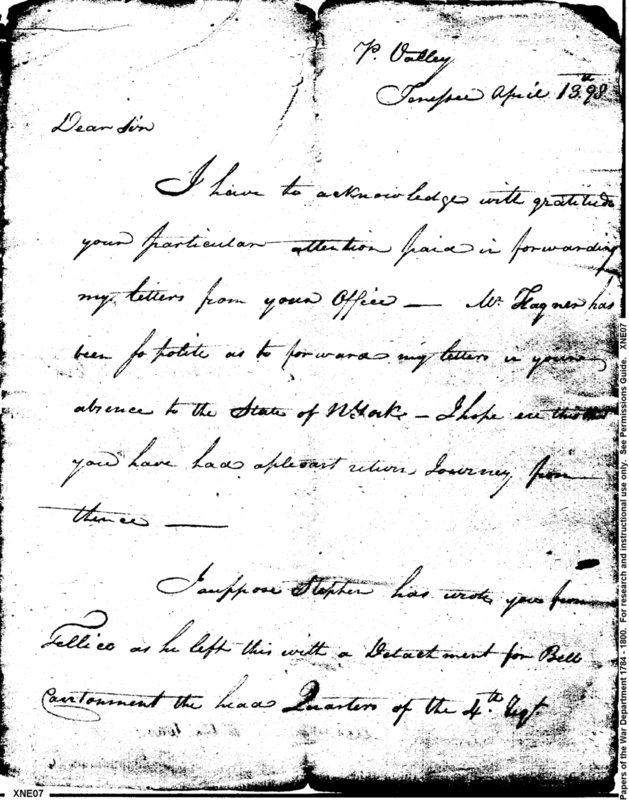 P. Valley
Tenessee April 13th 98
Dear Sir
I have to acknowledge with gratitude
your particular attention paid in forwarding
my letters from your Office — Mr Hagner has
been so polite as to forward my letters in your
absence to the State of N. York — I hope ere this
you have had apleasant return Journey from
thence —
I suppose Stephen has wrote you from
Tellico as he left this with a Detachment for Bell
Cantonment the head Quarters of the 4th Regt
XNE07
Papers of the War Department 1784 - 1800. For research and instructional use only. See Permissions Guide. XNE07